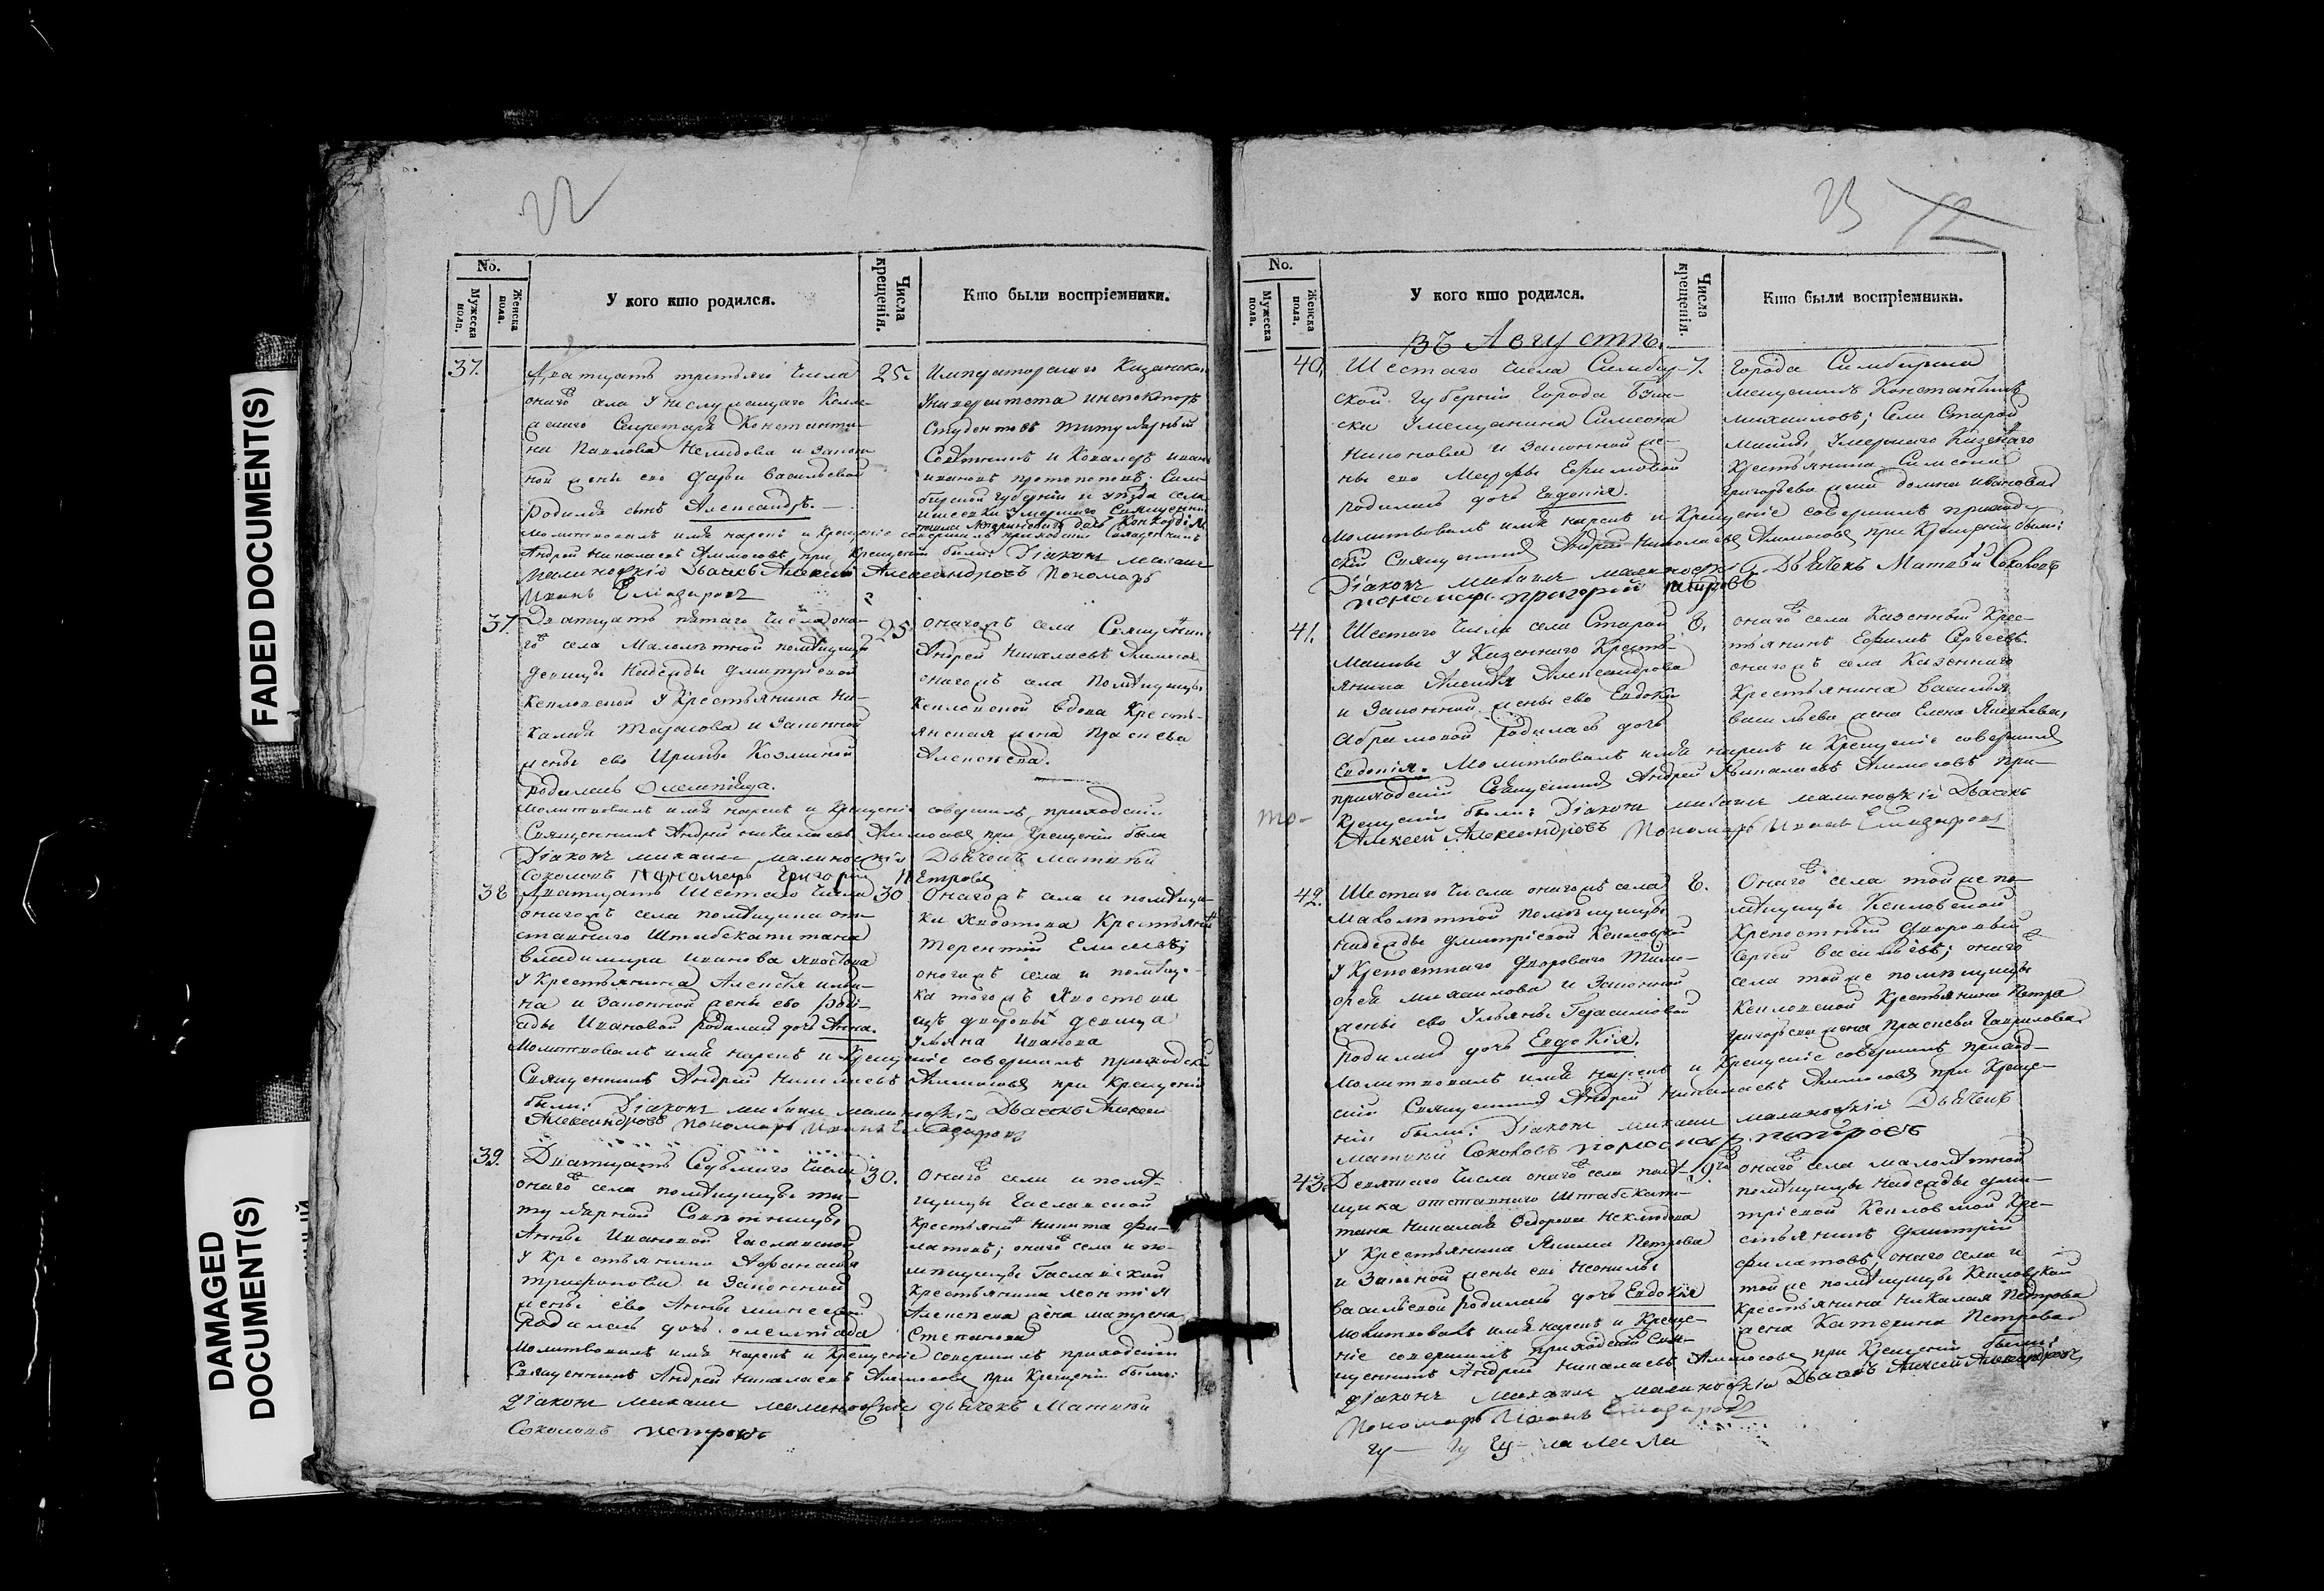 22
No.
Мужеска пола.
Женска пола.
У кого кто родился.
Числа крещенія.
Кто были воспріемники.
37.
Дватцать третьяго числа
онаго села У
Секретаря Константи-
на Павлова Нелидова и Закон-
ной жены ево Дарьи Васильевой
родился сынъ Александръ.
25.
Императорскаго Казанскаго
Университета инспекторъ
Студентовъ титулярный
Советникъ и Кавалеръ Иванъ
Ивановъ Протопоповъ; Сим-
бирской Губерніи и уезда села
умершаго Священни
дочь
Молитвовалъ имя нарекъ и Крещеніе совершилъ приходскій Священникъ
Андрей Николаевъ Аммосовъ при Крещеніи были: Діаконъ Михаилъ
Малиновскій Дьячекъ Алексей Александровъ Пономарь
Иванъ Елиазаровъ
37.
Дватцать пятаго числа она-
го села Малолетной помещицы
девицы Надежды Дмитріевой
Кепловской У Крестьянина Ни-
колая Тарасова и Законной
жены ево Ирины Козминой
родилась Олемпіяда.
25
онагожъ села Священникъ
Андрей Николаевъ Аммосовъ
онагожъ села помещицы
Кепловской вдова Кресть-
янская жена Прасковья
Алексеева.
Молитвовалъ имя нарекъ и Крещеніе совершилъ приходскій
Священникъ Андрей Николаевъ Аммосовъ при Крещеніи были
Діаконъ Михаилъ Малиновскій Дьячекъ Матвей
Соколовъ Пономарь Григорій Петровъ
38
Дватцать Шестаго числа
онагожъ села помещика от-
ставнаго Штабскапитана
Владимира Иванова
У Крестьянина Алексея Ива-
на и Законной жены ево
Ивановой родилась дочь Анна.
30
Онагожъ села и помещи-
ка Крестьянинъ
Терентій Елисеевъ;
онагожъ села и помещи-
ка тогожъ
дворовая девица
Ульяна Иванова
Молитвовалъ имя нарекъ и Крещеніе совершилъ приходскій
Священникъ Андрей Николаевъ Аммосовъ при Крещеніи
были: Діаконъ Михаилъ Малиновскій Дьячекъ Алексей
Александровъ Пономарь Иванъ Елиазаровъ
39.
Дватцать Седьмаго числа
онаго села помещицы ти-
тулярной Советницы
Анны Ивановой Чаславской
У Крестьянина Афанасья
Трифонова и Законной
жены ево Анны
родилась дочь Олемпіада
30.
Онаго села и поме-
щицы Чаславской
Крестьянинъ Никита Фи-
латовъ; онаго села и по-
мещицы Чаславской
Крестьянина Леонтія
Алексеева жена Матрена
Степанова
Молитвовалъ имя нарекъ и Крещеніе совершилъ приходскій
Священникъ Андрей Николаевъ Аммосовъ при Крещеніи были:
Діаконъ Михаилъ Малиновскій Дьячекъ Матвей
Соколовъ Петровъ
23
12
No.
Мужеска пола.
Женска пола.
У кого кто родился.
Числа крещенія.
Кто были воспріемники.
Въ Августе.
40.
Шестаго числа Симбир-
ской Губерніи Города Буин-
ска У мещанина Симеона
Никонова и Законной же-
ны ево Марфы Ефимовой
родилась дочь Евгенія.
7.
Города Симбирска
мещанинъ Константинъ
Михаиловъ; Села Старой
Майны умершаго Казеннаго
Крестьянина Симеона
Григорьева жена Домна Иванова
Молитвовалъ имя нарекъ и Крещеніе совершилъ приход-
скій Священникъ Андрей Николаевъ Аммосовъ при Крещеніи были:
Діаконъ Михаилъ Малиновскій Дьячекъ Матвей Соколовъ
пономарь Григорій Петровъ
41.
Шестаго числа села Старой
Майны У Казеннаго Кресть-
янина Алексея Александрова
и Законной жены ево Евдокіи
Абрамовой родилась дочь
Евдокія.
6.
онаго села Казенный Крес-
тьянинъ Ефимъ Сергеевъ.
онагожъ села Казеннаго
Крестьянина Василья
Васильева жена Елена Яковлева,
Молитвовалъ имя нарекъ и Крещеніе совершилъ
приходскій Священникъ Андрей Николаевъ Аммосовъ при
Крещеніи были: Діаконъ Михаилъ Малиновскій Дьячекъ
Алексей Александровъ Пономарь Иванъ Елиазаровъ
то-
42.
Шестаго числа онагожъ села
Малолетной помещицы
Надежды Дмитріевой Кепловской
У Крепостнаго Дворового Тимо-
фея Михаилова и Законной
жены ево Ульяны Герасимовой
родилась дочь Евдокія.
6.
Онаго села тойже по-
мещицы Кепловской
Крепостный Дворовый
Сергей Васильевъ; онаго
села тойже помещицы
Кепловской Крестьянина Петра
Григорьева жена Прасковья Гаврилова
Молитвовалъ имя нарекъ и Крещеніе совершилъ приход-
скій Священникъ Андрей Николаевъ Аммосовъ при Креще-
ніи были: Діаконъ Михаилъ Малиновскій Дьячекъ
Матвей Соколовъ пономарь Петровъ
43.
Девятаго числа онаго села поме-
щика отставнаго Штабскапи-
тана Николая Федорова Неклюдова
У Крестьянина Якима Петрова
и Законной жены ево Неонилы
Васильевой родилась дочь Евдокія
9го
онаго села малолетной
помещицы Надежды Дми-
тріевой Кепловской Кре-
стьянинъ Дмитрій
Филатовъ; онаго села и
тойже помещицы Кепловской
Крестьянина Николая Петрова
жена Катерина Петрова
Молитвовалъ имя нарекъ и Креще-
ніе совершилъ приходскій Свя-
щенникъ Андрей Николаевъ Аммосовъ при Крещеніи были:
Діаконъ Михаилъ Малиновскій Дьячекъ Алексей Александровъ
Пономарь Иванъ Елиазаровъ
FADED DOCUMENT(S)
DAMAGED
DOCUMENT(S)